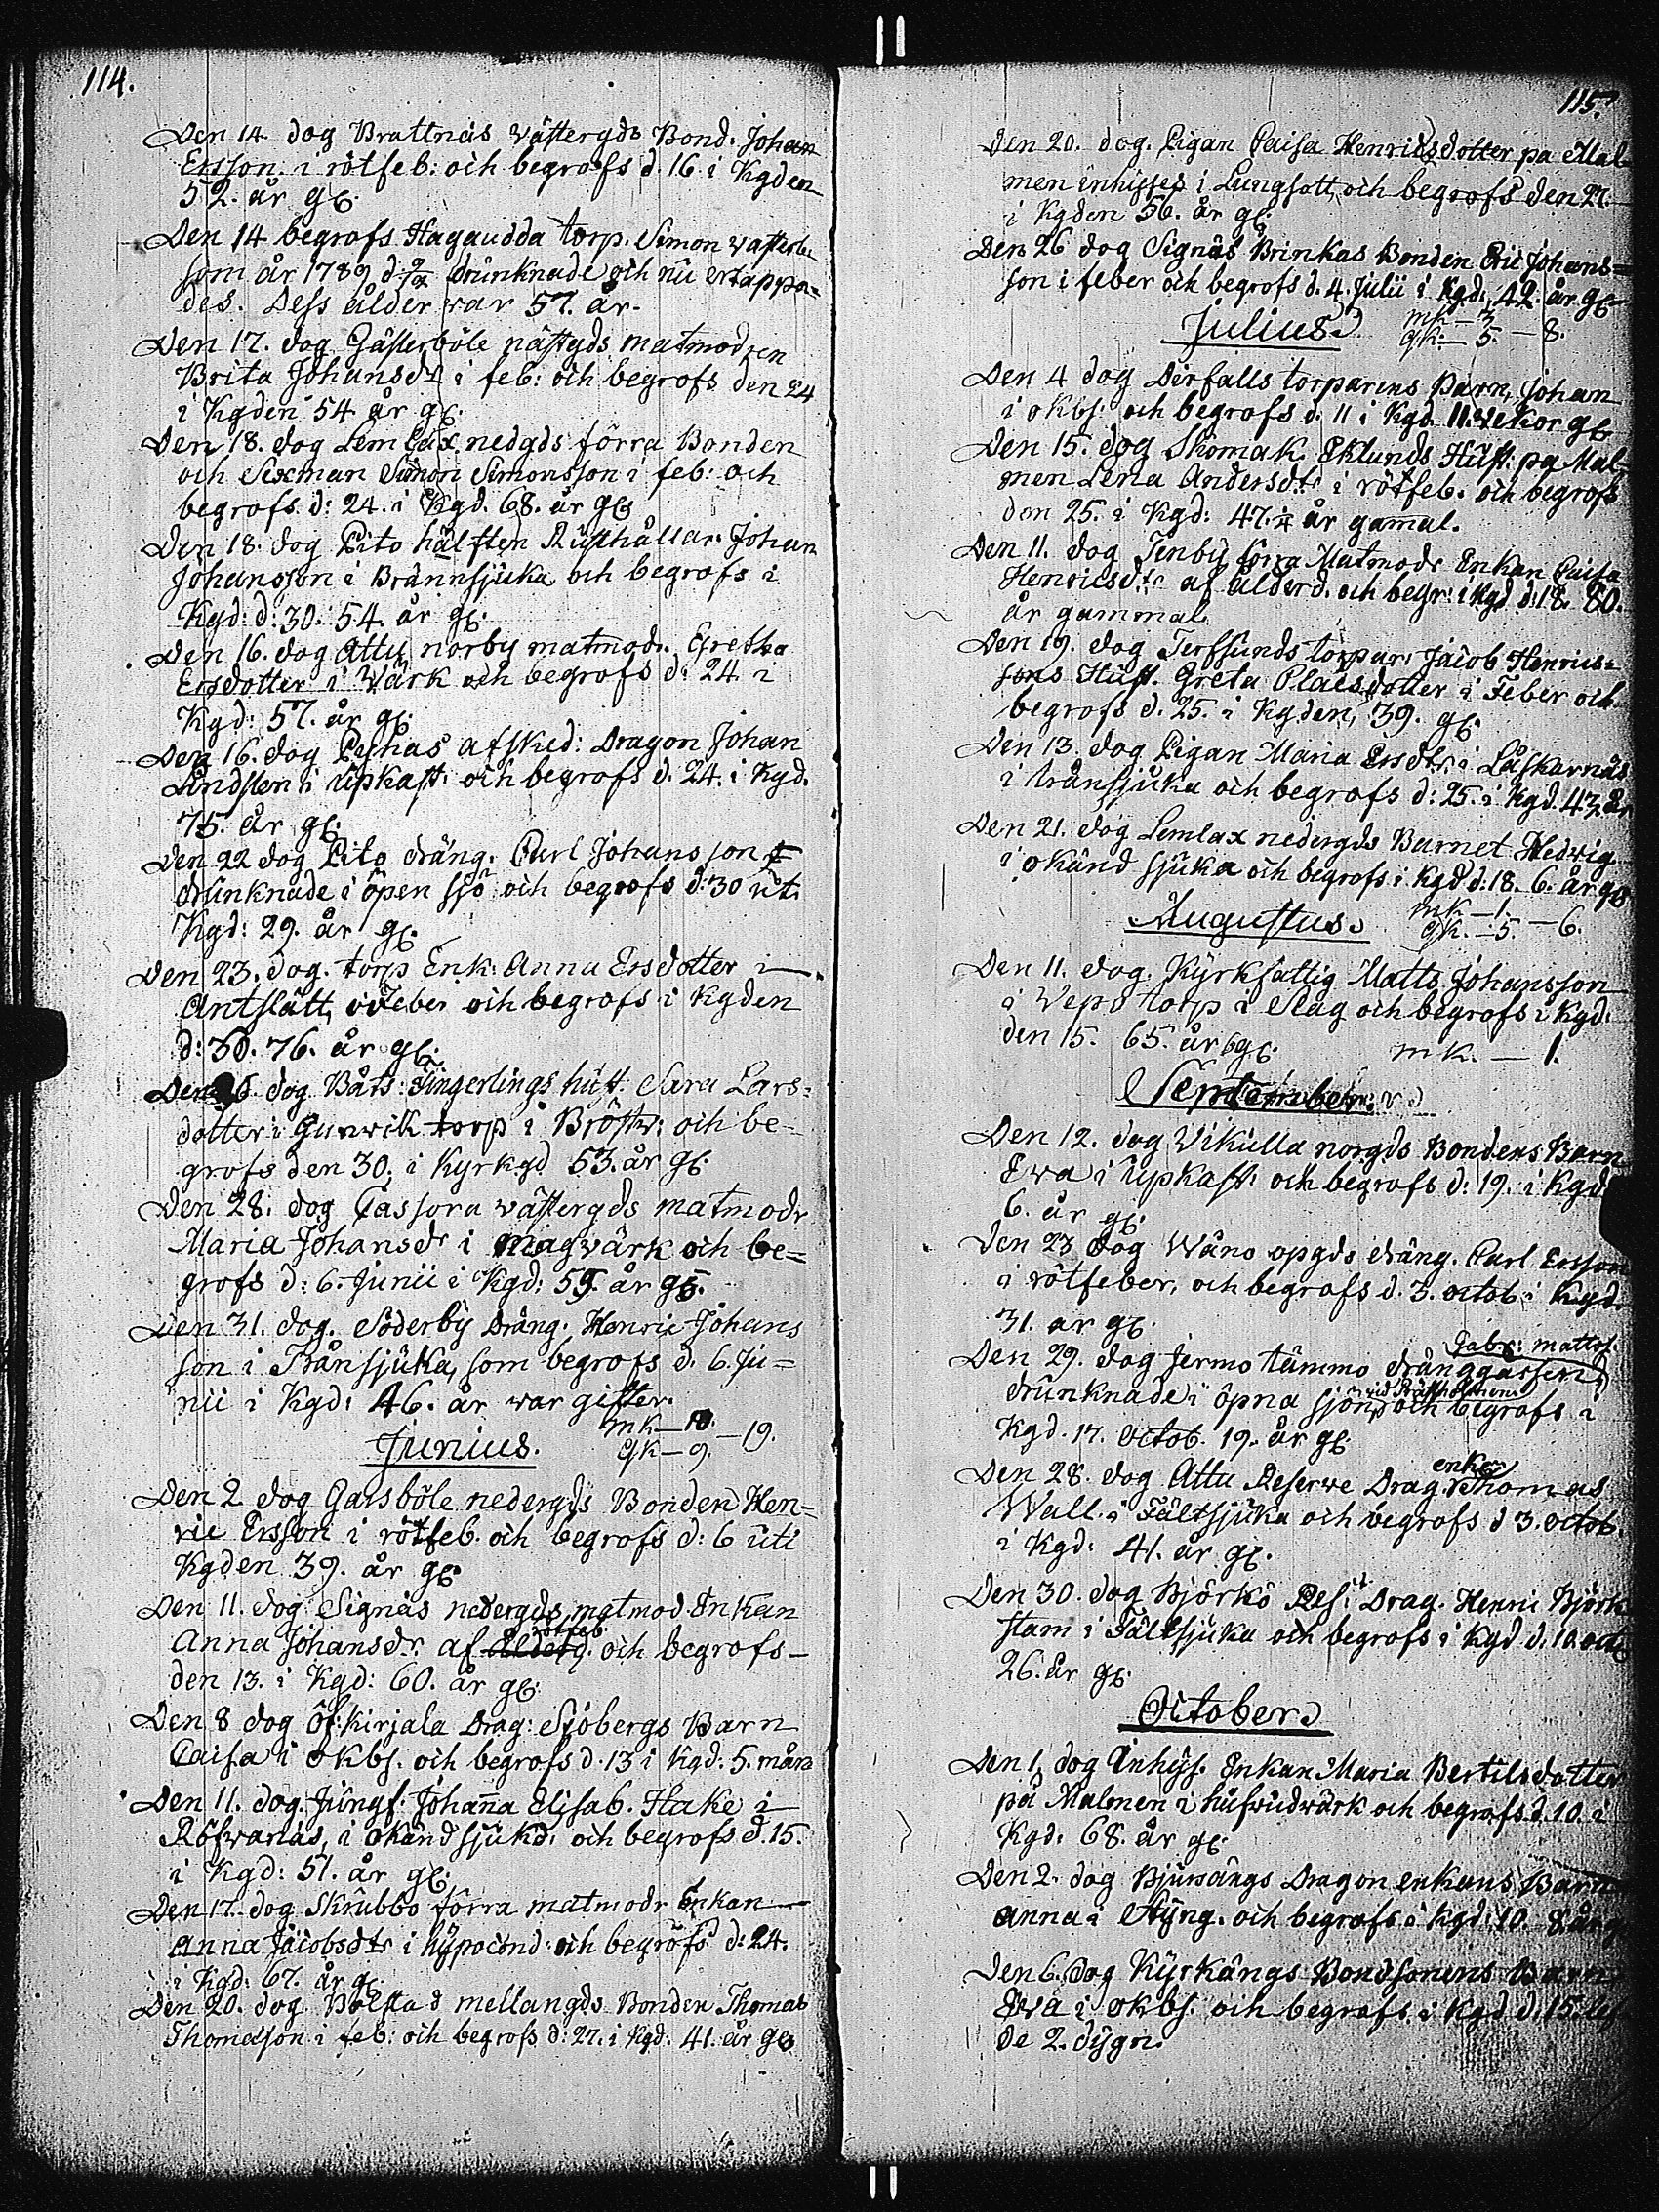 114.
Den 14. dog Brattnäs wästergds Bond. Johan
Ersson i rötfeb: och begrofs d. 16 i Kgden
52. år gl.
Den 14 begrofs Hagaudda torp. Simon
som år 1789 d. drunknade och nu ertappa=
des. Dess ålder war 57. år.
Den 17. dog Gästerböle nästgds matmodren
Brita Johansdr i feb: och begrofs den 24
i Kgden 54 år gl.
Den 18. dog Lemlax nedgds förra Bonden
och Sexman Simon Simonsson i feb: och
begrofs d: 24. i Kgd. 68. år gl
Den 18. dog Pito hälften Rusthållar. Johan
Johansson i Brännsjuka och begrofs i
Kgd: d: 30. 54. år gl.
Den 16. dog Attu norby matmodr. Gretha
Ersdotter i Wärk och begrofs d: 24 i
Kgd: 57. år gl.
Den 16. dog afsked: Dragon Johan
Lindsten i upkast: och begrofs d. 24. i Kgd.
75. år gl.
Den 22 dog Pito dräng. Carl Johansson
drunknade i öpen sjö och begrofs d: 30 uti
Kgd: 29. år gl.
Den 23. dog. torp Enk: Anna Ersdotter i
Antslätt, i Feber och begrofs i Kgden
d: 30. 76. år gl.
Den 26. dog Båts: Fingerlings hust. Sara Lars=
dotter i Gunwik torp i Bröstw: och be=
grofs den 30. i Kyrkgd 53. år gl.
Den 28. dog Tassora wästergds matmodr
Maria Johansdr i magwärk och be=
grofs d: 6. Junii i Kgd: 59. år gl.
Den 31. dog. Söderby Dräng. Henric Johans
son i Trånsjuka, som begrofs d. 6. Ju=
nii i Kgd: 46. år war gifter.
mk — 10.
Junius. qk — 9. — 19.
Den 2 dog Garsböle nedergds Bonden Hen=
ric Ersson i rötfeb. och begrofs d: 6 uti
Kgden 39. år gl.
Den 11. dog Signäs nedergds matmod. Enkan
rötfeb.
Anna Johansdr. af Ålderd. och begrofs
den 13. i Kgd: 60. år gl.
Den 8 dog Öf: kirjala Drag: Sjöbergs Barn
Caisa i okbs. och begrofs d. 13 i Kgd: 5. mån
Den 11. dog. Jungf: Johanna Elisab. Hake i
Röfwanäs, i okänd sjukd. och begrofs d. 15.
i Kgd: 51. år gl.
Den 17. dog Skrubbo förra matmodr Enkan
Anna Jacobsdtr i hypocond: och begrofs d: 24.
i Kgd: 67. år gl.
Den 20. dog Bolstad mellangds Bonden Thomas
Thomasson i feb: och begrofs d: 27. i Kgd. 41. år gl
115.
Den 20. dog. Pigan Caisa Henricsdotter på Mal
men inhyses i Lungsott, och begrofs den 27.
i Kgden 56. år gl.
Den 26 dog Signäs Brinkas Bonden Eric Johans=
son i feber och begrofs d. 4. Julii i Kgd: 42. år gl
mk — 3.
Julius. qk. — 5. — 8.
Den 4 dog Dirfalls torparens Barn, Johan
i okbs: och begrofs d. 11 i Kgd. 11. wekor gl
Den 15. dog Skomak. Eklunds Hust: på Mal=
men Lena Andersdtr i rötfeb. och begrofs
den 25. i Kgd: 47. år gammal.
Den 11. dog Tenby förra Matmodr Enkan Caisa
Henricsdtr af Ålderd. och begr: i Kgd d: 18. 80.
år gammal
Den 19. dog Terfsunds torpar: Jacob Henrics=
sons Hust. Greta Claesdotter i Feber och
begrofs d. 25. i Kgden, 39. gl.
Den 13. dog Pigan Maria Ersdtr. i Låskarnäs
i trånsjuka och begrofs d: 25. i Kgd. 43 år
Den 21. dog Lemlax nedergds Barnet Hedwig
i okänd sjuka och begrofs i Kgd d: 18. 6. år gl
mk — 1.
Augustus. qk. — 5. — 6.
Den 11. dog. Kyrkfattig Matts Johansson
i Wepo torp i Slag och begrofs i Kgd:
den 15. 65. år gl. mk. — 1.
September.
Den 12. dog Wikulla norgds Bondens Barn
Ewa i upkast: och begrofs d: 19. i Kgd
6. år gl.
Den 23 dog Wäno opgds dräng. Carl Ersson
i rötfeber, och begrofs d. 3. octob i Kgd.
31. år gl.
Gabr: matts.
Den 29. dog Jermo tämmo dränggassen,
drunknade i öpna sjön och begrofs i
Kgd. 17. Octob. 19. år gl
enka
Den 28. dog Attu Reserwe Drag. Thomas
Wall. i Fältsjuka och begrofs d 3. octob.
i Kgd. 41. år gl.
Den 30. dog Björkö Res: Drag. Henric Björk
stam i Fältsjuka och begrofs i Kgd d. 10. oct
26. år gl.
October
Den 1. dog Inhys. Enkan Maria Bertilsdotter
på Malmen i hufwudwärk och begrofs d. 10. i
Kgd: 68. år gl.
Den 2. dog Bjursängs Dragon enkans Barn
Anna i Styng. och begrofs i Kgd: 10.
Den 6. dog Kyrkängs Bondsonens Barn
Ewa i okbs. och begrofs i Kgd d. 15. lef
de 2. dygn.